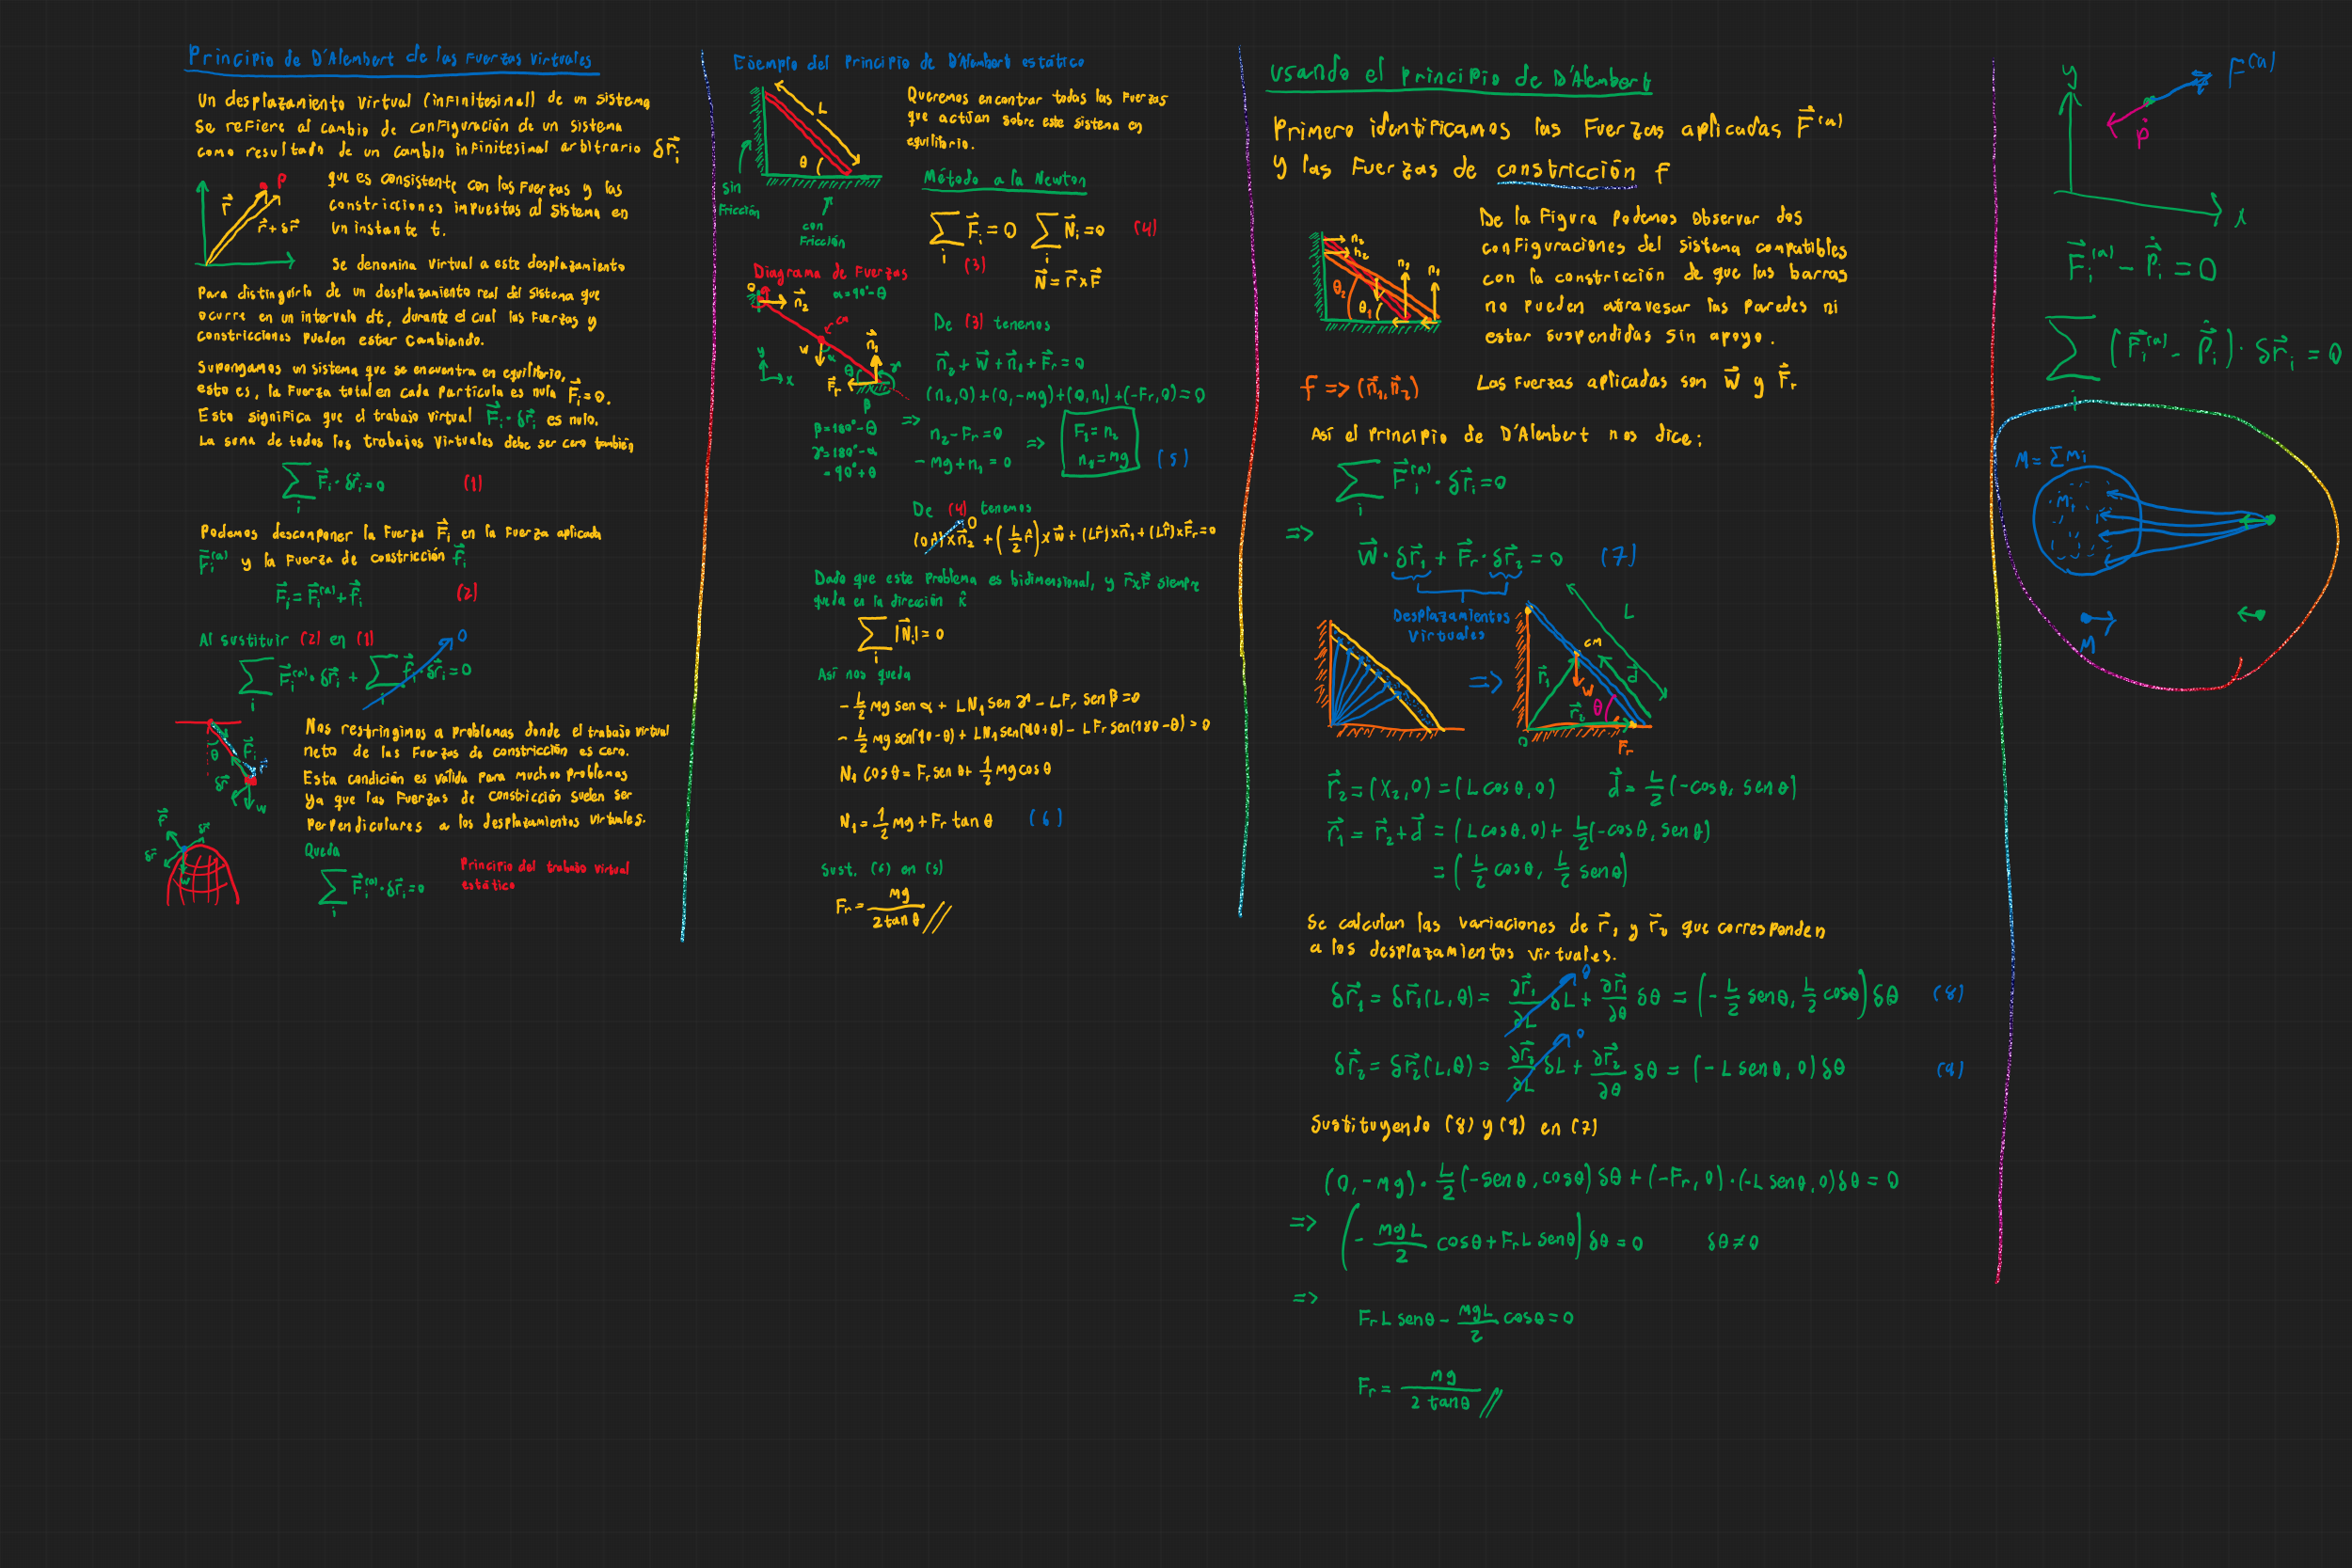 Principio de D'Alembert de las Fuerzas Virtuales
Un desplazamiento virtual (infinitesimal) de un sistema
se refiere al cambio de configuración de un sistema
como resultado de un cambio infinitesimal arbitrario δr⃗ᵢ
que es consistente con las fuerzas y las
constricciones impuestas al sistema en
un instante t.
P
r⃗
r⃗ + δr⃗
Se denomina virtual a este desplazamiento
Para distinguirlo de un desplazamiento real del sistema que
ocurre en un intervalo dt, durante el cual las fuerzas y
constricciones pueden estar cambiando.
Supongamos un sistema que se encuentra en equilibrio,
esto es, la fuerza total en cada partícula es nula F⃗ᵢ=0.
Esto significa que el trabajo virtual F⃗ᵢ·δr⃗ᵢ es nulo.
La suma de todos los trabajos virtuales debe ser cero también
∑ᵢ F⃗ᵢ·δr⃗ᵢ=0 (1)
Podemos descomponer la fuerza F⃗ᵢ en la fuerza aplicada
F⃗ᵢ⁽ᵃ⁾ y la fuerza de constricción f⃗ᵢ
F⃗ᵢ=F⃗ᵢ⁽ᵃ⁾+f⃗ᵢ (2)
Al sustituir (2) en (1)
∑ᵢ F⃗ᵢ⁽ᵃ⁾·δr⃗ᵢ + ∑ᵢ f⃗ᵢ·δr⃗ᵢ=0
0
Nos restringimos a problemas donde el trabajo virtual
neto de las fuerzas de constricción es cero.
Esta condición es válida para muchos problemas
ya que las fuerzas de constricción suelen ser
perpendiculares a los desplazamientos virtuales.
θ
δr⃗
w
Queda
∑ᵢ F⃗ᵢ⁽ᵃ⁾·δr⃗ᵢ=0
Principio del trabajo virtual
estático
Ejemplo del Principio de D'Alembert estático
L
θ
sin
Fricción
con
Fricción
Queremos encontrar todas las fuerzas
que actúan sobre este sistema en
equilibrio.
Método a la Newton
∑ᵢ F⃗ᵢ=0 ∑ᵢ N⃗ᵢ=0 (4)
(3)
N⃗=r⃗×F⃗
Diagrama de Fuerzas
α=90°-θ
n⃗₂
w
α
n⃗₁
θ
F⃗r
β
y
x
β=180°-θ
γ=180°-α
=90°+θ
De (3) tenemos
n⃗₂+w⃗+n⃗₁+F⃗r=0
(n₂,0)+(0,-mg)+(0,n₁)+(-Fr,0)=0
=> n₂-Fr=0
-mg+n₁=0
=> F₁=n₂
n₁=mg (5)
De (4) tenemos
(0r̂)×n⃗₂ + (L/2 r̂)×w⃗ + (Lr̂)×n⃗₁+(Lr̂)×F⃗r=0
0
Dado que este problema es bidimensional, y r⃗×F⃗ siempre
queda en la dirección k̂
∑ᵢ |N⃗ᵢ|=0
Así nos queda
-L/2 mg sen α + LN₁ sen γ - LFr sen β=0
-L/2 mg sen(90-θ) + LN₁ sen(90+θ) - LFr sen(180-θ)=0
N₁ cosθ=Fr senθ+1/2 mg cosθ
N₁=1/2 mg+Fr tanθ (6)
Sust. (6) en (5)
Fr=mg/(2tanθ)//
Usando el Principio de D'Alembert
Primero identificamos las fuerzas aplicadas F⃗⁽ᵃ⁾
y las fuerzas de constricción f
n₂
n₂
n₁
n₁
θ₂
θ₁
De la figura podemos observar dos
configuraciones del sistema compatibles
con la constricción de que las barras
no pueden atravesar las paredes ni
estar suspendidas sin apoyo.
f => (n⃗₁,n⃗₂)
Las fuerzas aplicadas son w⃗ y F⃗r
Así el Principio de D'Alembert nos dice:
∑ᵢ F⃗ᵢ⁽ᵃ⁾·δr⃗ᵢ=0
=>
w⃗·δr⃗₁ + F⃗r·δr⃗₂=0 (7)
Desplazamientos
Virtuales
=>
L
CM
r⃗₁
d⃗
w
θ
r⃗₂
0
Fr
r⃗₂=(x₂,0)=(L cosθ,0) d⃗=L/2(-cosθ, senθ)
r⃗₁=r⃗₂+d⃗=(Lcosθ,0)+L/2(-cosθ, senθ)
=(L/2 cosθ, L/2 senθ)
Se calculan las variaciones de r⃗₁ y r⃗₂ que corresponden
a los desplazamientos virtuales.
δr⃗₁=δr⃗₁(L,θ)=∂r⃗₁/∂L δL+∂r⃗₁/∂θ δθ=(-L/2 senθ, L/2 cosθ)δθ (8)
0
δr⃗₂=δr⃗₂(L,θ)=∂r⃗₂/∂L δL+∂r⃗₂/∂θ δθ=(-L senθ,0)δθ (9)
0
Sustituyendo (8) y (9) en (7)
(0,-mg)·L/2(-senθ, cosθ)δθ+(-Fr,0)·(-L senθ,0)δθ=0
=> (-mgL/2 cosθ+FrL senθ)δθ=0 δθ≠0
=>
FrL senθ-mgL/2 cosθ=0
Fr=mg/(2 tanθ)//
y
x
F⃗⁽ᵃ⁾
ṗ
F⃗ᵢ⁽ᵃ⁾-ṗ⃗ᵢ=0
∑ᵢ (F⃗ᵢ⁽ᵃ⁾-ṗ⃗ᵢ)·δr⃗ᵢ=0
M=∑mᵢ
mᵢ
M